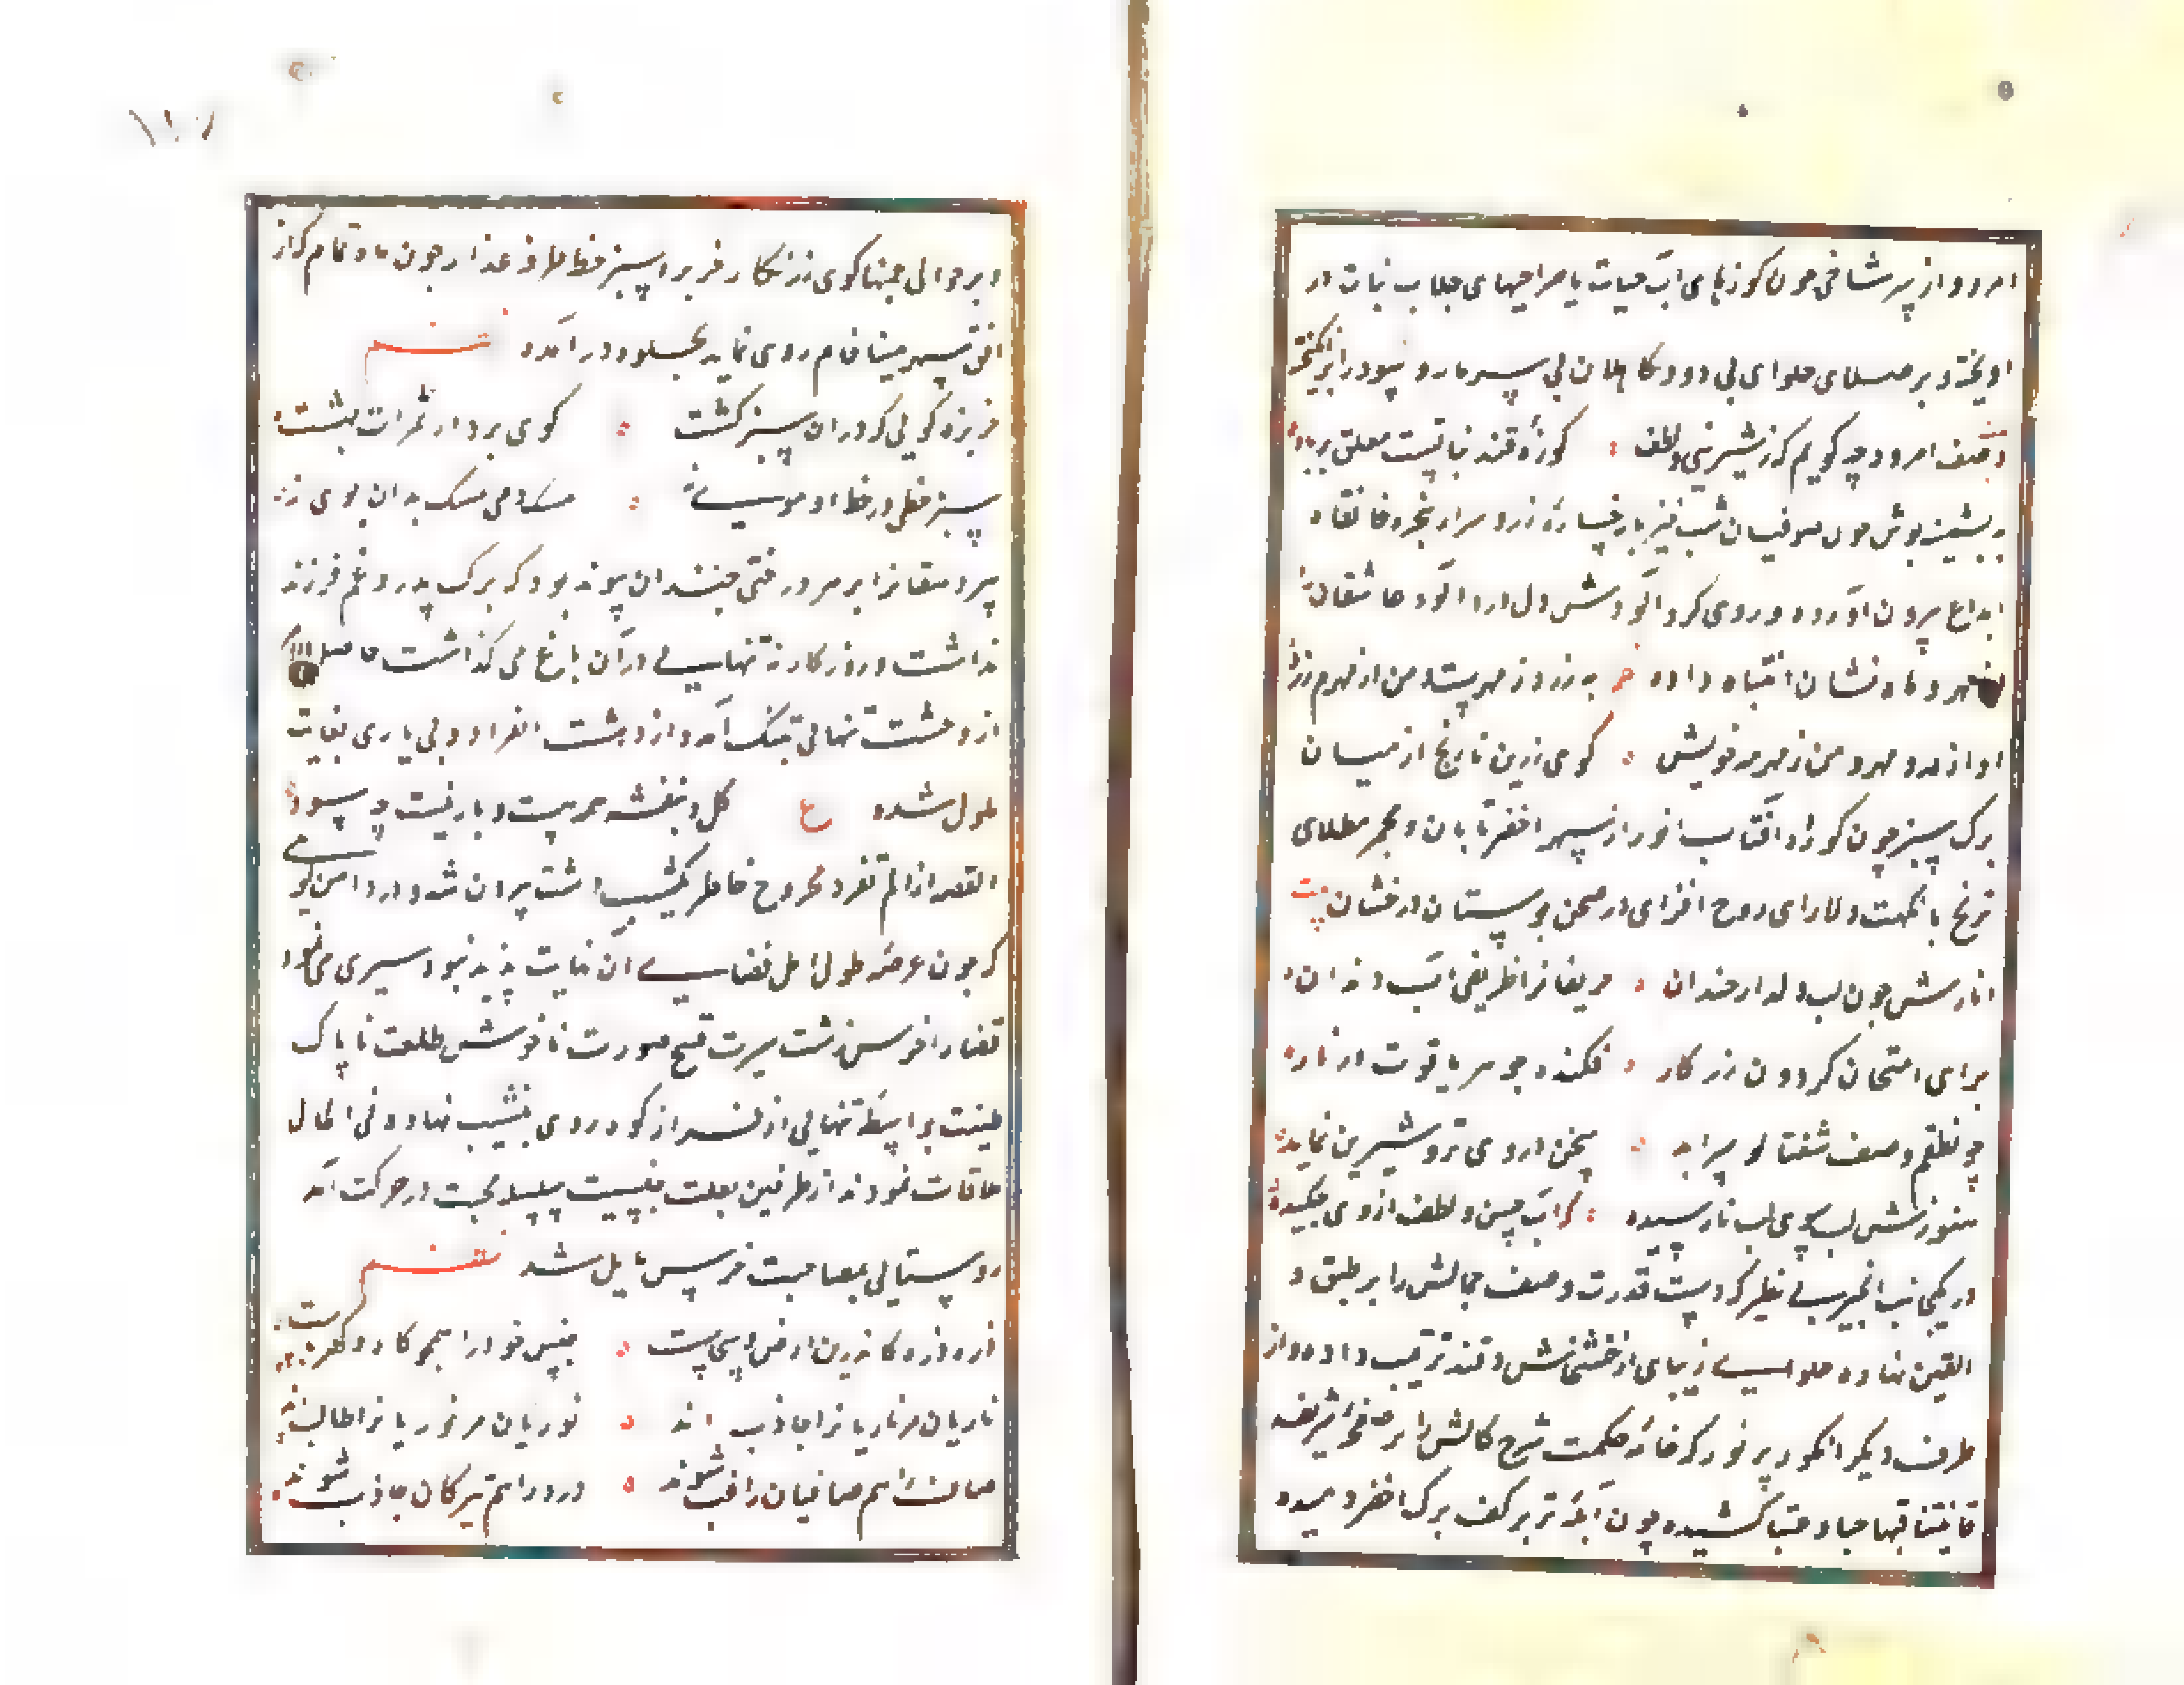 امرود از هر شاخی چون کوزهای آب حیات یا صراحیهای جلاب نبات در
آویخته و بر صلای حلوای بی دود کاهلان بی سرمایه و سود را برانگیخته
وصف امرود چه کویم که ز شیرینی و لطف کوزهٔ قند نباتیست معلق بر بار
به پشمینه پوش چون صوفیان شب خیز با رخسارهٔ زرد سر از پنجرهٔ خانقاه
ابداع بیرون آورده و روی کرد آلودش دل درد آلود عاشقان
مهر و ماه نشان انتباه داده به زرد ز مهرست و من از مهرم زرد
او از مه و مهر و من ز مهر مه خویش کوی زرین نارنج از میان
برک سبز چون کوزهٔ آفتاب انور از سپهر اخضر تابان و مجمر مطلای
ترنج با نکهت دلارای روح افزای در صحن بوستان درخشان بیت
انارش چون لب دلدار خندان حریفان را ظریفی آب دندان
برای امتحان کردون زرکار فکنده جوهر یاقوت در نار
چو نطقم وصف شفتالو سراید سخن در وی تر و شیرین نماید
هنوزش لب سوی لب نارسیده که آب حسن و لطف از وی چکیده
در یکجانب انجیر بی نظیر که دست قدرت وصف جمالش را بر طبق و
التین نهاده حلوایی زیبای از خشخاش و قند ترتیب داده و از
طرف دیکر انکور پر نور که خامهٔ حکمت شرح کمالش را بر صفحهٔ شریفه
فانبتنا فیها حبا و عنبا کشیده چون آبلهٔ تر بر کف برک اخضر دمیده
و بر حوالی چمنها کوی زرنکار خربزهٔ سبز خط طرفه عذار چون ماه تمام که از
افق سپهر مینا فام روی نماید بجلوه در آمده نظم
خربزه کویی که در ان سبز کشت کوی برد از ثمرات بهشت
سبز خطی در خط او موی نه مشک دمی مشک بدان بوی نه
پیر دهقان را بر هر درختی چندان پیوند بود که برک پدر و غم فرزند
نداشت و روزکار به تنهایی در آن باغ می کذاشت حاصل
از وحشت تنهایی بتنک آمد و از دهشت انفراد و بی یاری بغایت
ملول شده ع کل و بنفشه همه هست و یار نیست چه سود
القصه از الم تفرد مجروح خاطر کشته بدشت بیرون شد و در دامن کوهی
که چون عرصهٔ طول امل فضای آن نهایت پذیر نبود سیری می نمود
قضا را خرسی زشت سیرت قبیح صورت ناخوش طلعت ناپاک
طینت بواسطهٔ تنهایی از فراز کوه روی بنشیب نهاد و فی الحال
ملاقات نمودند از طرفین بعلت جنسیت سلسلهٔ محبت در حرکت آمد
روستایی بمصاحبت خرس مایل شد نظم
ذره ذره کاندرین ارض و سماست جنس خود را همچو کاه و کهرباست
ناریان مر ناریان را جاذب اند نوریان مر نوریان را طالبند
صاف را هم صافیان راغب شوند درد را هم تیرکان جاذب شوند